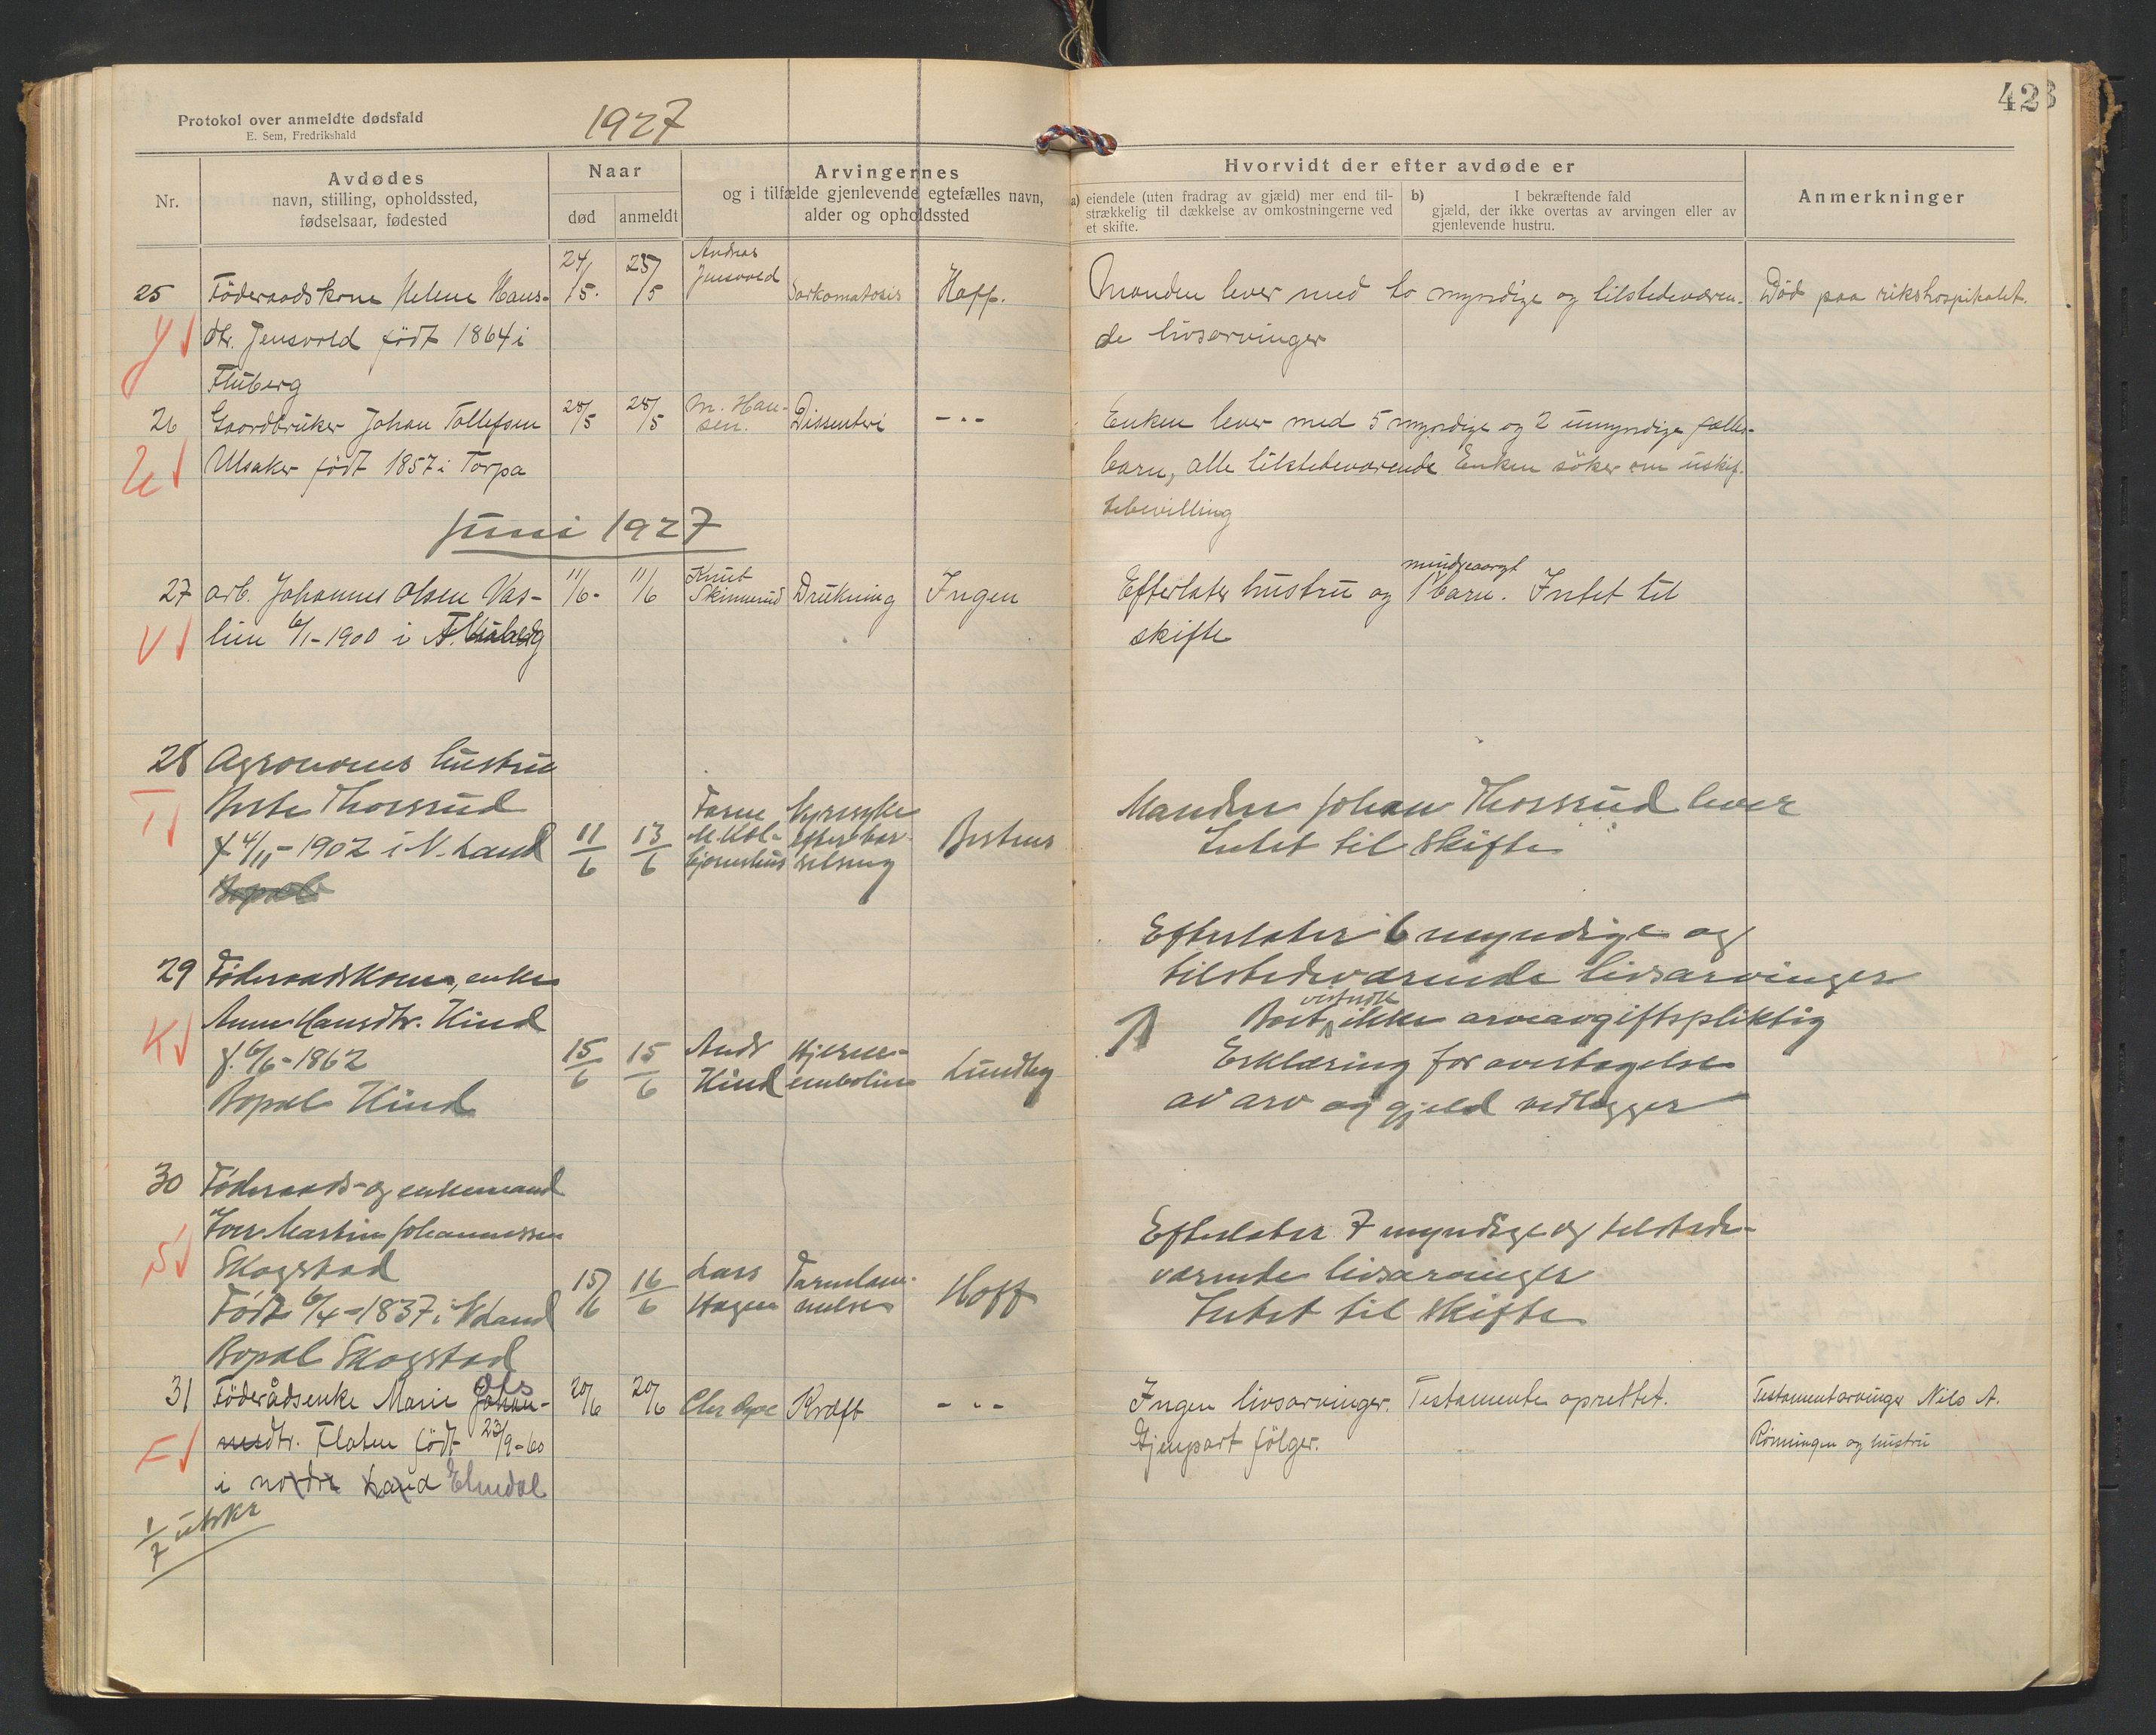 Protokol over anmeldte dødsfald
E. Sem, Fredrikshald
1927
42
Nr.
Avdødes
navn, stilling, opholdssted,
fødselsaar, fødested
Naar
død
anmeldt
Arvingernes
og i tilfælde gjenlevende egtefælles navn,
alder og opholdssted
Hvorvidt der efter avdøde er
a) eiendele (uten fradrag av gjæld) mer end til-
strækkelig til dækkelse av omkostningerne ved
et skifte.
b) I bekræftende fald
gjæld, der ikke overtas av arvingen eller av
gjenlevende hustru.
Anmerkninger
25 Föderaadskone Helene Hans- 24/5. 25/5 Andreas Jensvold Sarkomatosis Hoff. Manden lever med to myndige og tilstedeværen- Död paa rikshospitalet.
J dtr. Jensvold født 1864 i de livsarvinger
Fluberg
26 Gaardbruker Johan Tollefsen 28/5 28/5 M. Han- Dissenteri - - - Enken lever med 5 myndige og 2 umyndige fælles-
sen.
U Ulsaker født 1857 i Torpa barn, alle tilstedeværende Enken söker om uskif-
tebevilling
Juni 1927
27 arb. Johannes Olsen Vas- 11/6- 11/6 Knut Skinnerud Drukning Ingen Efterlater hustru og 1 mindreaarigt barn. Intet til
V lien 6/1-1900 i Fluberg skifte
28 Agronoms hustru
T Thorsrud
f 4/11-1902 i N. Land 11/6 13/6 Manden Johan Thorsrud lever
Bopæl Intet til skifte
Efterlater 6 myndige og
29 Föderaadskone, enke tilstedeværende livsarvinger
K Anne Hansdtr. Kind Boet ikke arveavgiftspliktig
f. 6/6-1862 15/6 15/6 Andr Kind Hjerne- embolien Lundby Erklæring for overtagelse
Bopæl Kind av arv og gjeld vedlægges
30 Föderaads- og enkemand
Martin Johannessen Efterlater 7 myndige og tilstede-
S Skogstad 15/6 16/6 Lars Hagen Hoff værende livsarvinger
Født 6/4-1837 i N Land Intet til skifte
Bopæl Skogstad
31 Föderådsenke Marie Johan- Ols 20/6 20/6 Kræft - - - Ingen livsarvinger. Testamente oprettet. Testamentarvinger Nils A.
F nesdtr. Flaten født 23/9-60 Gjenpart fölger. Rönningen og hustru
i nordre Land Etnedal
1/7 utskr